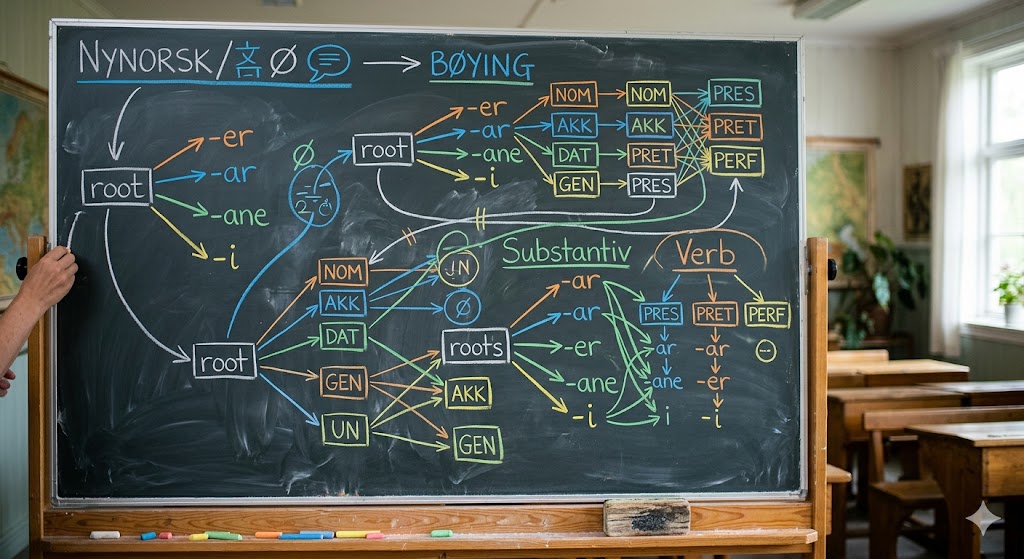 NYNORSK / Ø → BØYING
root
-er
-ar
-ane
-i
Ø
root
-er
-ar
-ane
-i
NOM NOM PRES
AKK AKK PRET
DAT PRET PERF
GEN PRES
root
NOM
AKK
DAT
GEN
UN
Ø
roots
AKK
GEN
Substantiv
-ar
-ar
-er
-ane
-i
Verb
PRES PRET PERF
ar -ar
ane -er
i -i